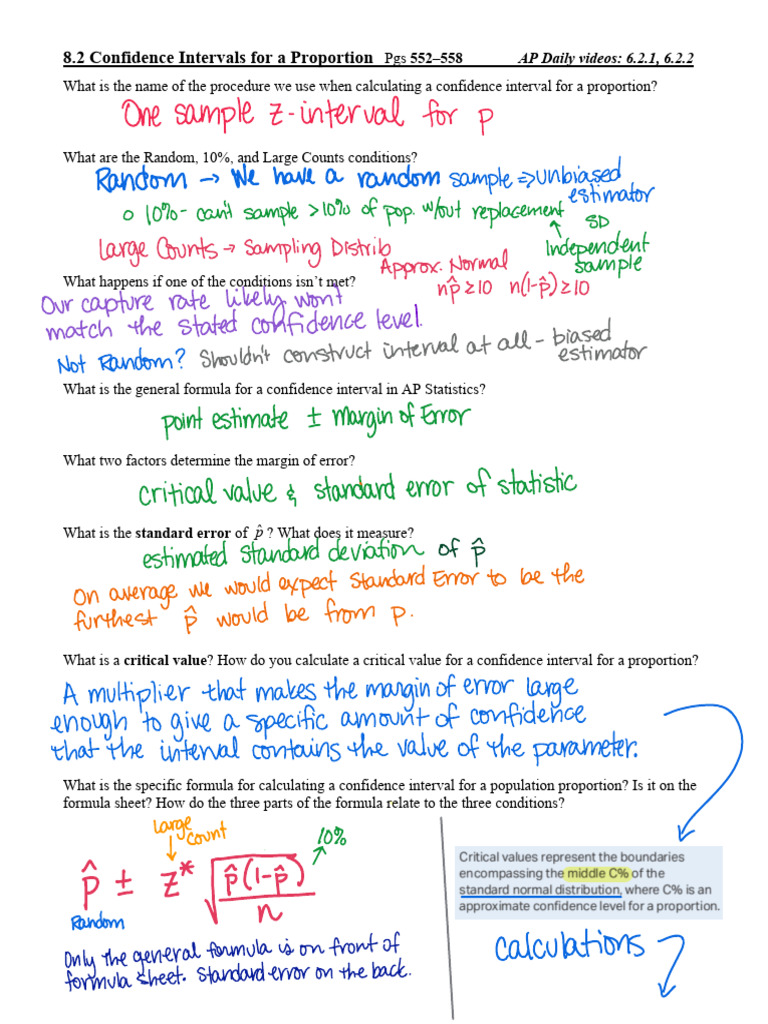 8.2 Confidence Intervals for a Proportion Pgs 552–558 AP Daily videos: 6.2.1, 6.2.2
What is the name of the procedure we use when calculating a confidence interval for a proportion?
One sample z-interval for p
What are the Random, 10%, and Large Counts conditions?
Random → We have a random sample ⇒ Unbiased
estimator
○ 10% - can't sample >10% of pop. w/out replacement
SD
Independent
sample
Large Counts → Sampling Distrib
Approx. Normal
What happens if one of the conditions isn't met?
np̂ ≥ 10 n(1-p̂) ≥ 10
Our capture rate likely wont
match the stated confidence level.
Not Random? Shouldn't construct interval at all - biased
estimator
What is the general formula for a confidence interval in AP Statistics?
point estimate ± Margin of Error
What two factors determine the margin of error?
critical value & standard error of statistic
What is the standard error of p̂ ? What does it measure?
estimated standard deviation of p̂
On average we would expect Standard Error to be the
furthest p̂ would be from p.
What is a critical value? How do you calculate a critical value for a confidence interval for a proportion?
A multiplier that makes the margin of error large
enough to give a specific amount of confidence
that the interval contains the value of the parameter.
What is the specific formula for calculating a confidence interval for a population proportion? Is it on the
formula sheet? How do the three parts of the formula relate to the three conditions?
large
count
10%
p̂ ± z* √(p̂(1-p̂)/n)
Random
Only the general formula is on front of
formula sheet. Standard error on the back.
Critical values represent the boundaries
encompassing the middle C% of the
standard normal distribution, where C% is an
approximate confidence level for a proportion.
calculations